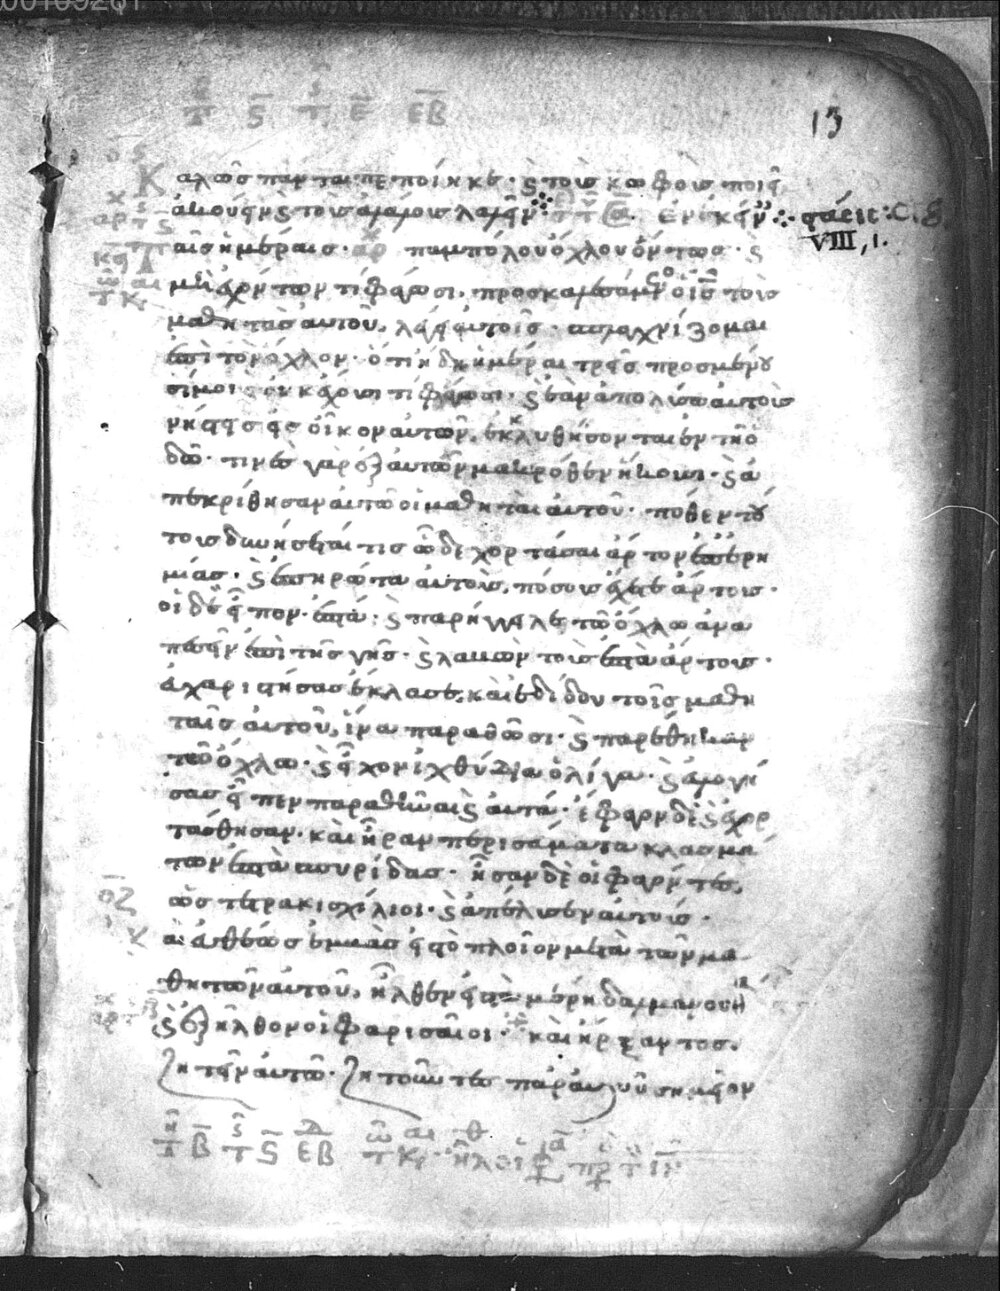 13
Καλῶς πάντα πεποίηκε· ϛ τοὺς κωφοὺς ποιεῖ
ἀκούειν ϛ τοὺς ἀλάλους λαλεῖν
VIII, 1.
ταῖς ἡμέραις· παμπόλου ὄχλου ὄντος· ϛ
μὴ ἐχόντων τί φάγωσι, προσκαλεσάμενος ὁ ις τοὺς
μαθητὰς αὐτοῦ, λέγει αὐτοῖς· σπλαχνίζομαι
ἐπὶ τὸν ὄχλον· ὅτι ἤδη ἡμέραι τρεῖς προσμένου
σί μοι ϛ οὐκ ἔχουσι τί φάγωσι· ϛ ἐὰν ἀπολύσω αὐτοὺς
νήστεις εἰς οἶκον αὐτῶν, ἐκλυθήσονται ἐν τῇ ὁ
δῷ· τινὲς γὰρ ἐξ αὐτῶν μακρόθεν ἥκουσι· ϛ ἀ
πεκρίθησαν αὐτῷ οἱ μαθηταὶ αὐτοῦ· πόθεν τού
τους δυνήσεταί τις ὧδε χορτάσαι ἄρτον ἐπ' ἐρη
μίας· ϛ ἐπηρώτα αὐτούς, πόσους ἔχετε ἄρτους·
οἱ δὲ εἶπον· ἑπτά· ϛ παρήγγειλε τῷ ὄχλῳ ἀνα
πεσεῖν ἐπὶ τῆς γῆς· ϛ λαβὼν τοὺς ἑπτὰ ἄρτους·
εὐχαριστήσας ἔκλασε, καὶ ἐδίδου τοῖς μαθη
ταῖς αὐτοῦ, ἵνα παραθῶσι· ϛ παρέθηκαν
τῷ ὄχλῳ· ϛ εἶχον ἰχθύδια ὀλίγα· ϛ εὐλογή
σας εἶπεν παραθεῖναι ϛ αὐτά· ἔφαγον δὲ ϛ ἐχορ
τάσθησαν· καὶ ἦραν περισσεύματα κλασμά
των ἑπτὰ σπυρίδας· ἦσαν δὲ οἱ φαγόντες,
ὡς τετρακισχίλιοι· ϛ ἀπέλυσεν αὐτούς·
εὐθέως ἐμβὰς εἰς τὸ πλοῖον μετὰ τῶν μα
θητῶν αὐτοῦ, ἦλθεν εἰς τὰ μέρη δαλμανουθά
ϛ ἐξῆλθον οἱ φαρισαῖοι· καὶ ἤρξαντο σ
ζητεῖν αὐτῷ· ζητοῦντες παρ' αὐτοῦ σημεῖον